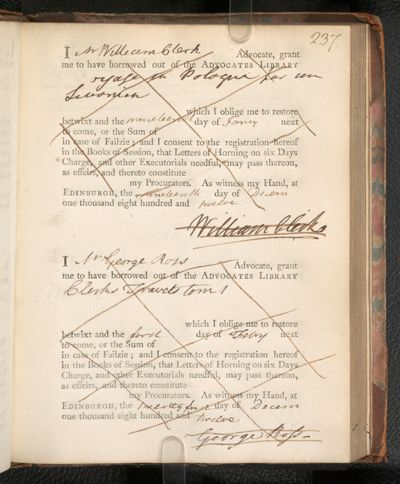 237.
I Mr William Clerk Advocate, grant
me to have borrowed out of the ADVOCATES LIBRARY
oyage en Pologne par un
Livonien
which I oblige me to restore
betwixt and the nineteenth day of Janry next
to come, or the Sum of
in case of Failzie; and I consent to the registration hereof
in the Books of Session, that Letters of Horning on six Days
Charge, and other Executorials needful, may pass thereon,
as effeirs, and thereto constitute
my Procurators. As witness my Hand, at
EDINBURGH, the nineteenth day of Decem
one thousand eight hundred and twelve
William Clerk
I Mr George Ross Advocate, grant
me to have borrowed out of the ADVOCATES LIBRARY
Clerks Travels tom 1
which I oblige me to restore
betwixt and the first day of next
to come, or the Sum of
in case of Failzie; and I consent to the registration hereof
in the Books of Session, that Letters of Horning on six Days
Charge, and other Executorials needful, may pass thereon,
as effeirs, and thereto constitute
my Procurators. As witness my Hand, at
EDINBURGH, the twenty first day of Decem
one thousand eight hundred and twelve
George Ross